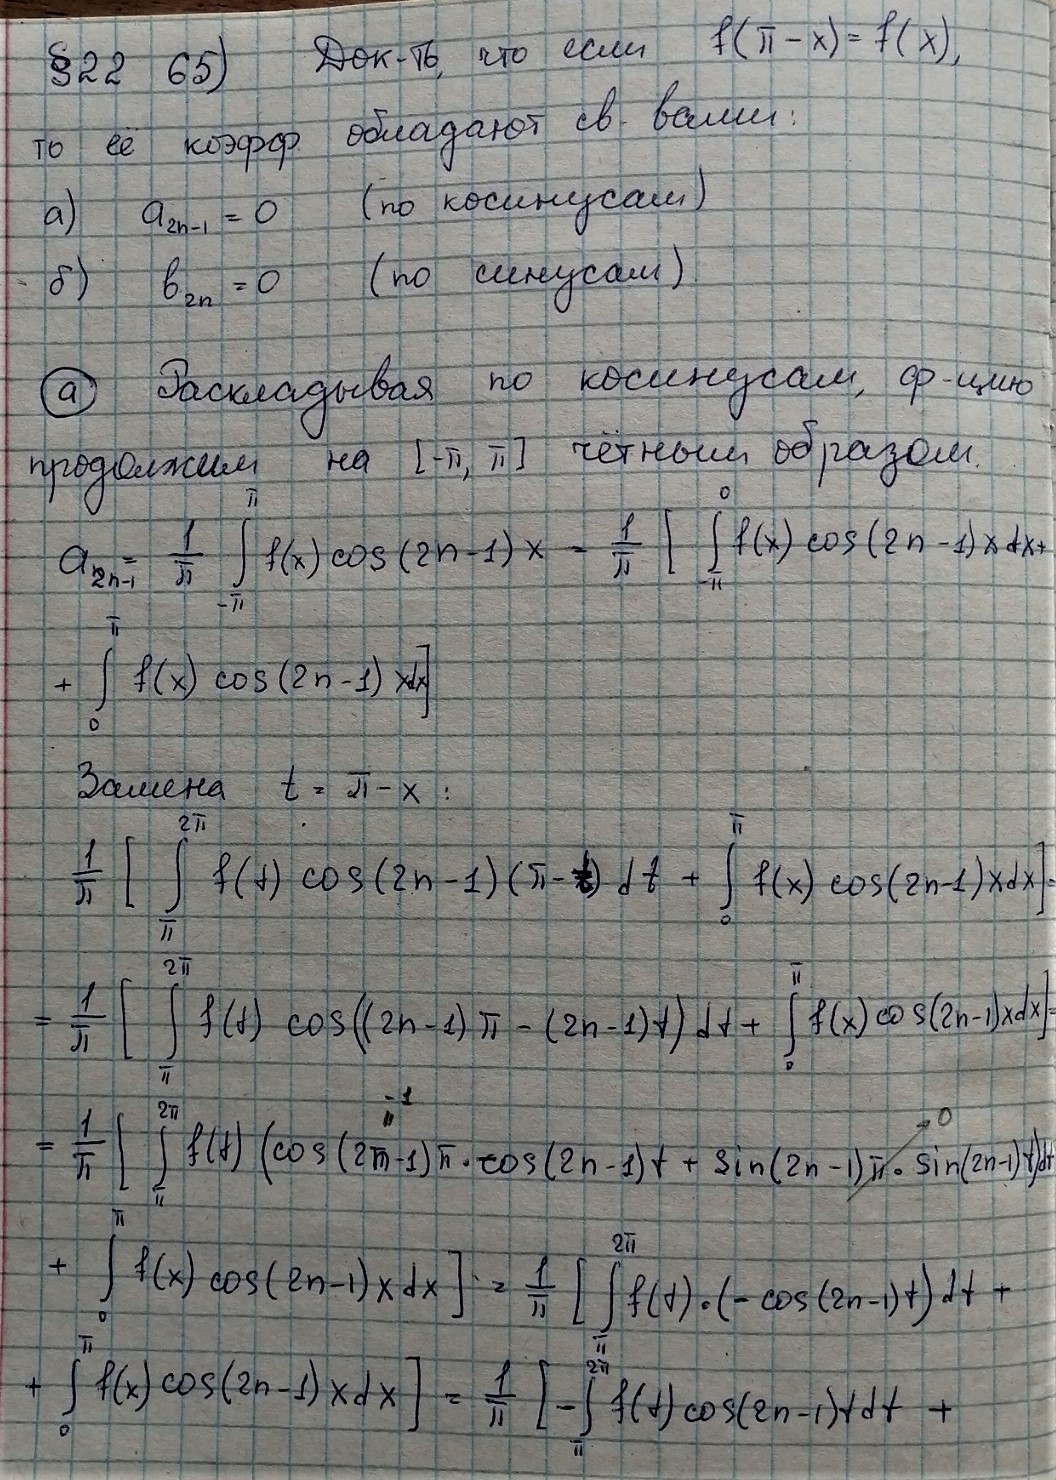 §22 65) Док-ть, что если f(π-x)=f(x),
то её коэфф обладают св-вами:
а) a₂ₙ₋₁ = 0 (по косинусам)
б) b₂ₙ = 0 (по синусам)
(а) Раскладывая по косинусам, ф-цию
продолжим на [-π, π] чётным образом.
a₂ₙ₋₁ = 1/π ∫_{-π}^{π} f(x) cos(2n-1)x = 1/π [ ∫_{-π}^{0} f(x) cos(2n-1)x dx +
+ ∫_{0}^{π} f(x) cos(2n-1)x dx]
Замена t = π-x :
1/π [ ∫_{π}^{2π} f(t) cos(2n-1)(π-t) dt + ∫_{0}^{π} f(x) cos(2n-1)x dx] =
= 1/π [ ∫_{π}^{2π} f(t) cos((2n-1)π - (2n-1)t) dt + ∫_{0}^{π} f(x) cos(2n-1)x dx] =
= 1/π [ ∫_{π}^{2π} f(t) (cos(2n-1)π · cos(2n-1)t + sin(2n-1)π · sin(2n-1)t) dt
-1
0
+ ∫_{0}^{π} f(x) cos(2n-1)x dx ] = 1/π [ ∫_{π}^{2π} f(t)·(-cos(2n-1)t) dt +
+ ∫_{0}^{π} f(x) cos(2n-1)x dx ] = 1/π [ -∫_{π}^{2π} f(t) cos(2n-1)t dt +